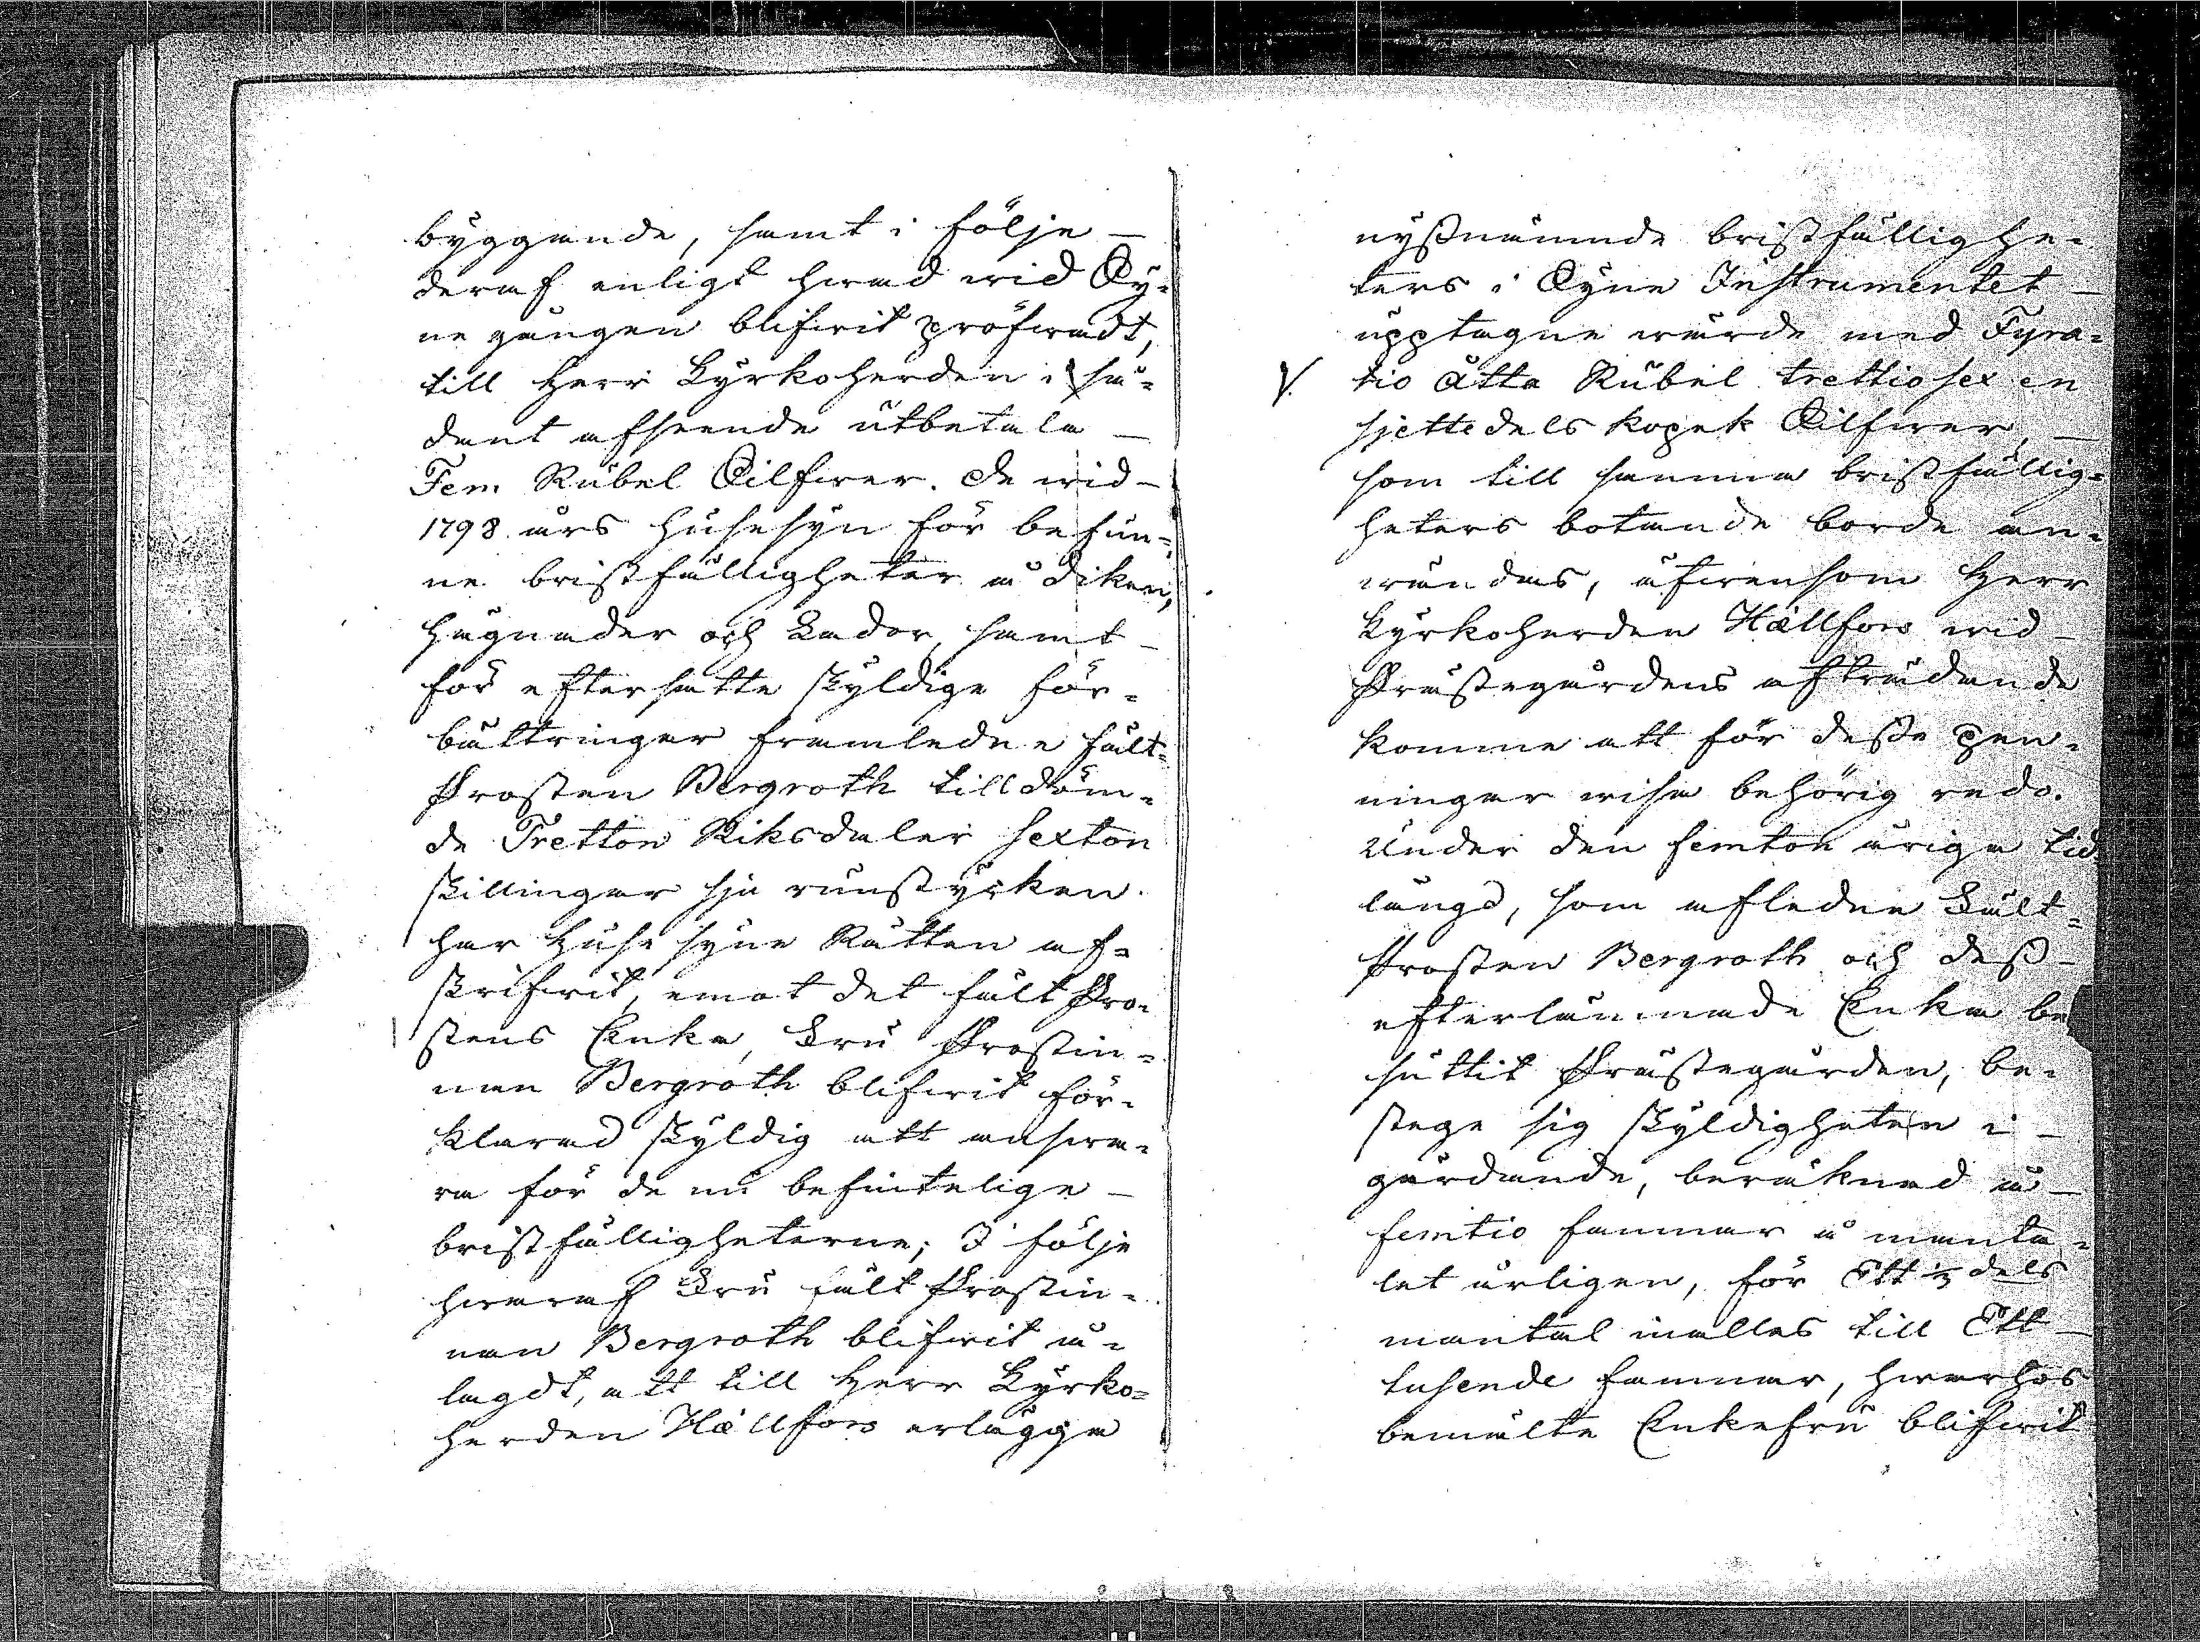 byggande, samt i följe
deraf enligt hwad wid Sy=
ne gången blifwit pröfwadt,
till Herr Kyrkoherden i så=
dant afseende utbetala
Fem Rubel Silfwer. De wid
1798 års Husesyn för befun=
ne bristfälligheter å diken,
hägnader och Lador, samt
för eftersatte skyldige för=
bättringar framledne Fält=
Prosten Bergroth tilldöm=
de Tretton Riksdaler sexton
skillingar sju runstycken
har Huse syne Rätten af=
skrifwit, emot det Fält Pro=
stens Enka, Fru Prostin=
nan Bergroth blifwit för=
klarad skyldig att answa=
ra för de nu befintelige
bristfälligheterne; I följe
hwaraf Fru Fält Prostin=
nan Bergroth blifwit å=
lagdt, att till Herr Kyrko=
herden Hællfors erlägga
nyßnämnde bristfällighe=
ters i Syne Instrumentet
upptagne wärde med Fyra=
V. tio åtta Rubel trettiosex en
sjettedels kopek Silfwer,
som till samma bristfällig=
heters botande borde an=
wändas, äfwensom Herr
Kyrkoherden Hællfors wid
Prästegårdens afträdande
komme att för deße pen=
ningar wisa behörig redo.
Under den femton åriga tid
längd, som afledne Fält=
Prosten Bergroth och deß
efterlämnade Enka be
suttit Prästegården, be=
stege sig skyldigheten i
gärdande, beräknad å
femtio famnar å manta=
let årligen, för Ett 1/3 dels
mantal inalles till Ett
tusende famnar, hwarhos
bemälte Enkefru blifwit